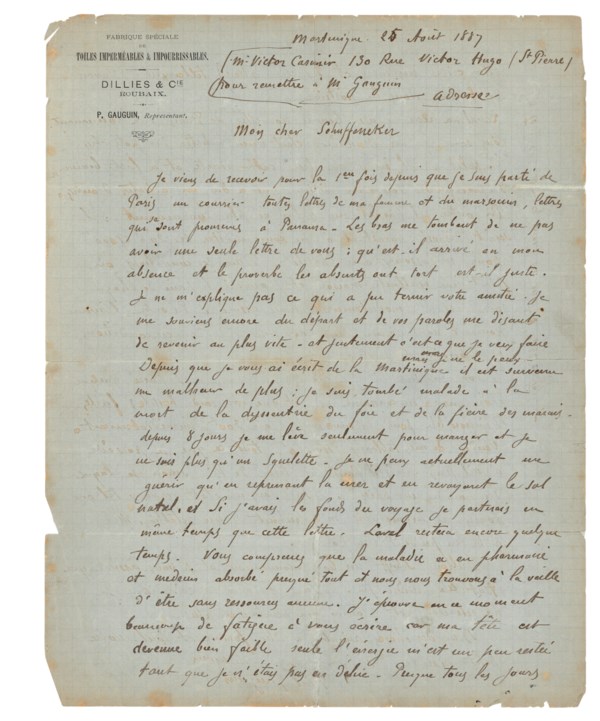 FABRIQUE SPÉCIALE
DE
TOILES IMPERMÉABLES & IMPOURRISSABLES.
DILLIES & CIE
ROUBAIX.
P. GAUGUIN, Représentant.
Martinique 25 Août 1887
(Mr Victor Casimir 130 Rue Victor Hugo (St Pierre)
pour remettre à Mr Gauguin
adresse
Mon cher Schuffeneker
Je viens de recevoir pour la 1ere fois depuis que je suis parti de
Paris un courrier toutes lettres de ma femme et du marsouin, lettres
qui se sont promenées à Panama. Les bras me tombent de ne pas
avoir une seule lettre de vous : qu'est-il arrivé en mon
absence et le proverbe les absents ont tort est-il juste.
Je ne m'explique pas ce qui a pu ternir votre amitié. Je
me souviens encore du départ et de vos paroles me disant
de revenir au plus vite - et justement c'est ce que je veux faire
mais je ne le peux -
Depuis que je vous ai écrit de la Martinique il est survenu
un malheur de plus ; je suis tombé malade à la
mort de la dyssentrie du foie et de la fièvre des marais.
depuis 8 jours je me lève seulement pour manger et je
ne suis plus qu'un squelette. Je ne peux actuellement me
guérir qu'en reprenant la mer et en revoyant le sol
natal, et Si j'avais les fonds du voyage je partirais en
même temps que cette lettre. Laval restera encore quelque
temps. Vous comprenez que la maladie a en pharmacie
et médecins absorbé presque tout et nous nous trouvons à la veille
d'être sans ressources aucune. J'éprouve en ce moment
beaucoup de fatigue à vous écrire car ma tête est
devenue bien faible seule l'énergie m'est un peu restée
tant que je n'étais pas en délire. Presque tous les jours